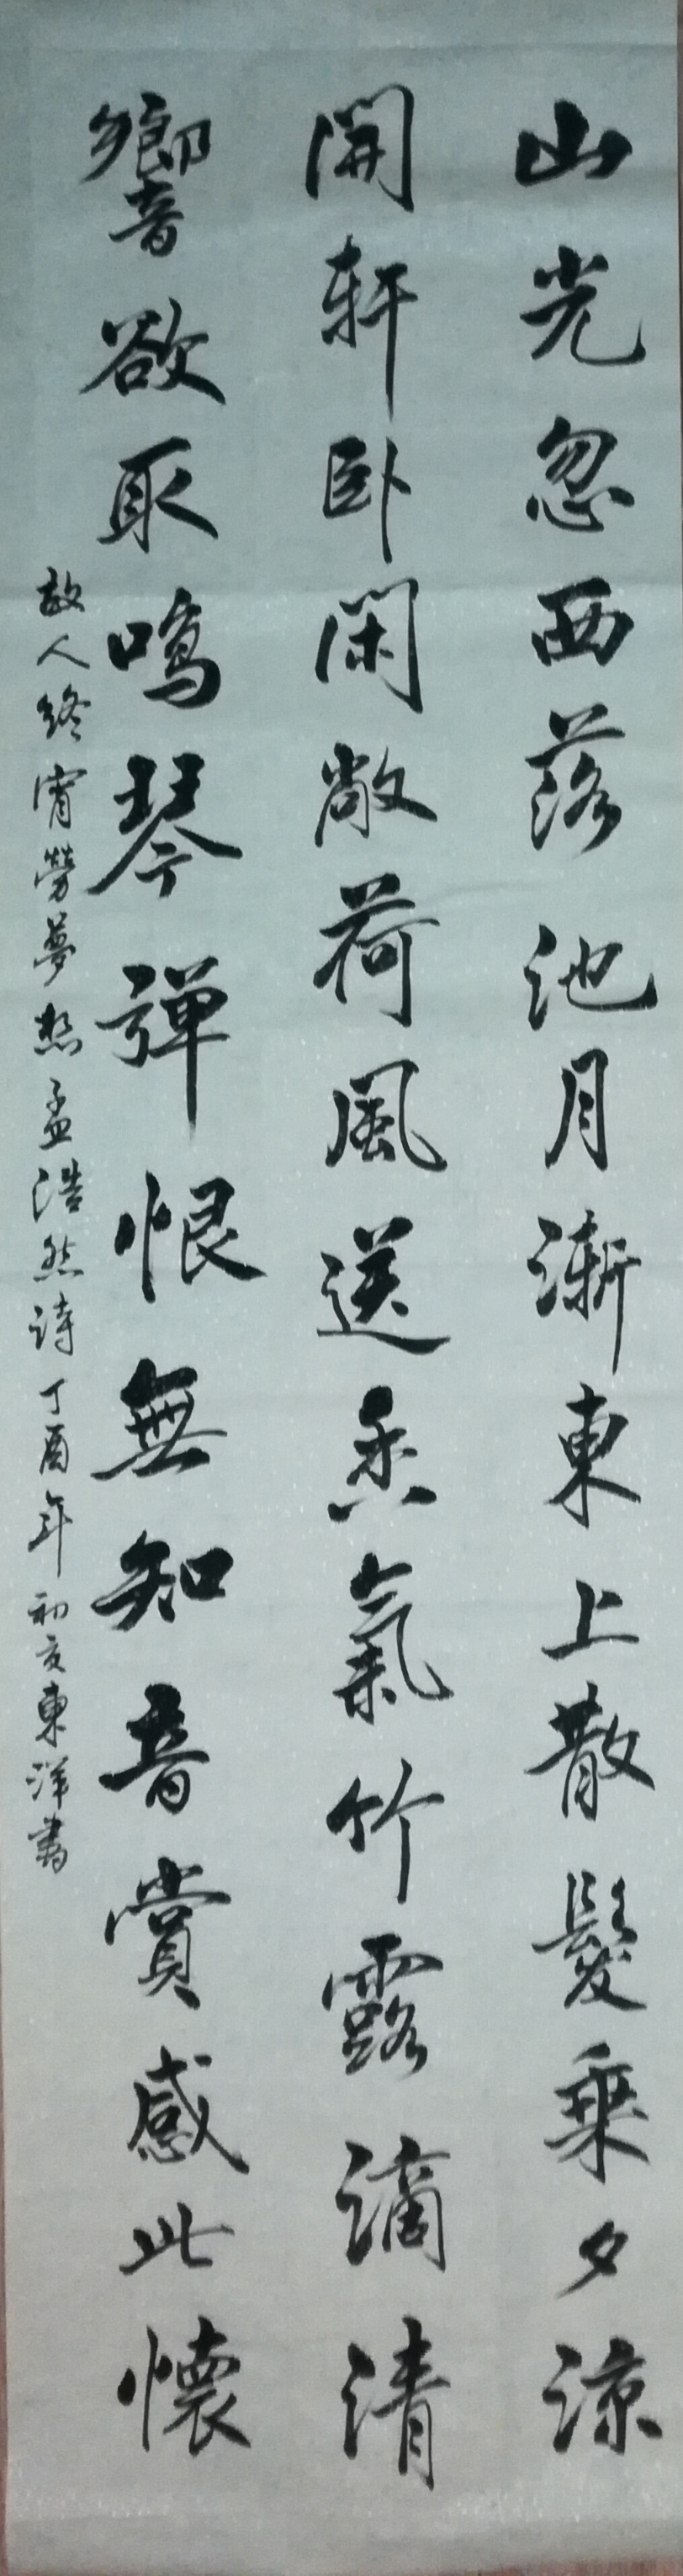 山光忽西落池月漸東上散髮乗夕涼
開軒卧閑敞荷風送香氣竹露滴清
響欲取鳴琴彈恨無知音賞感此懷
故人終宵勞夢想孟浩然诗丁酉年初亥東洋書